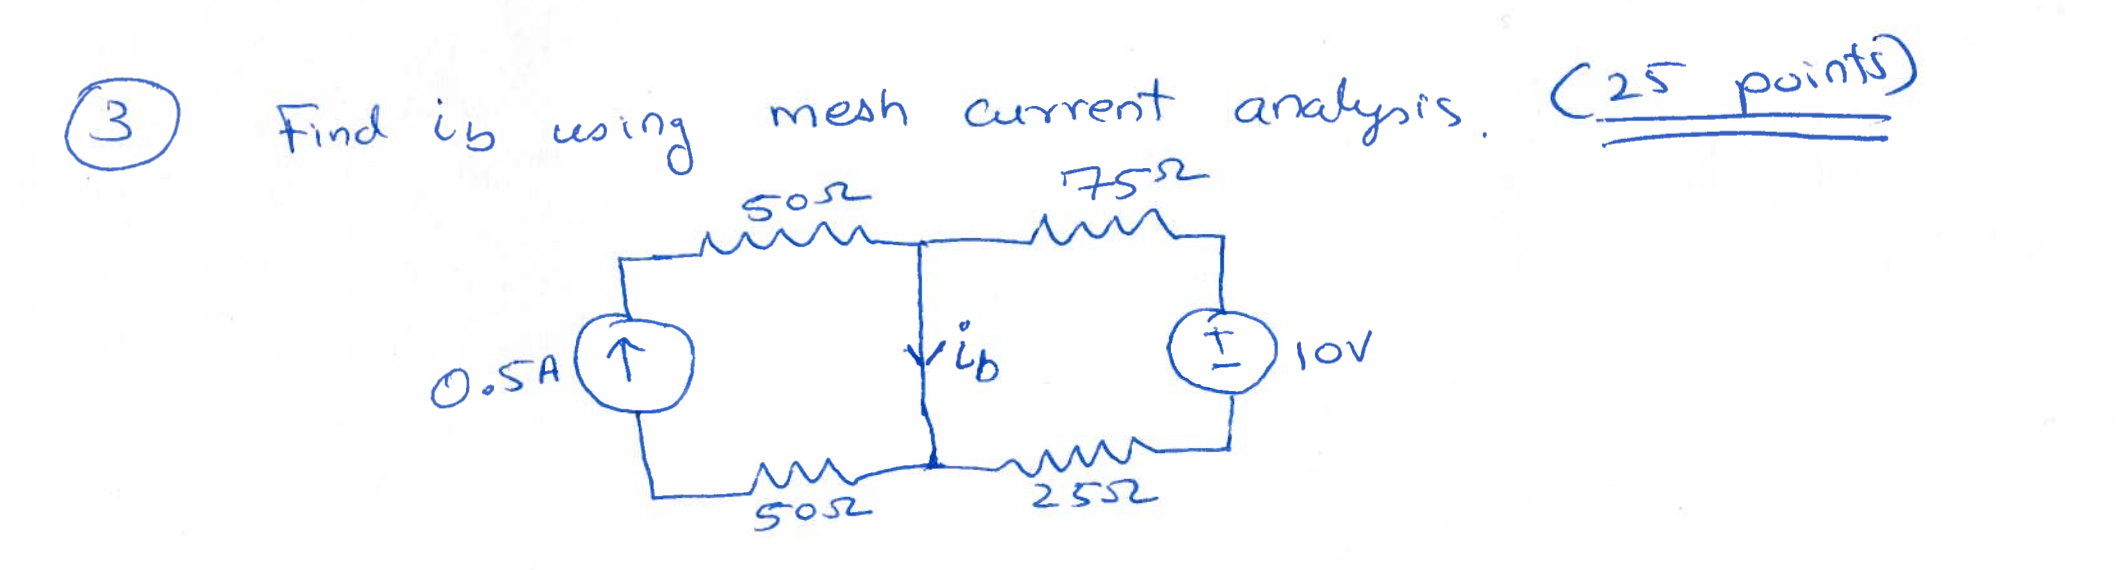 3 Find ib using mesh current analysis. (25 points)
50Ω 75Ω
0.5A ib + - 10V
50Ω 25Ω